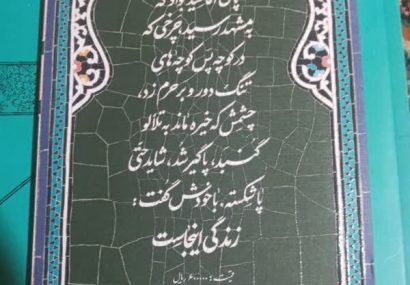 به مشهد رسید چرخی که
در کوچه پس کوچه های
تنگ دور و بر حرم زد،
چشمش که خیره ماند به تلالو
گنبد، پاگیر شد، شاید حتی
پا شکسته، با خودش گفت:
زندگی اینجاست
قیمت: ۶۰۰۰۰۰ ریال